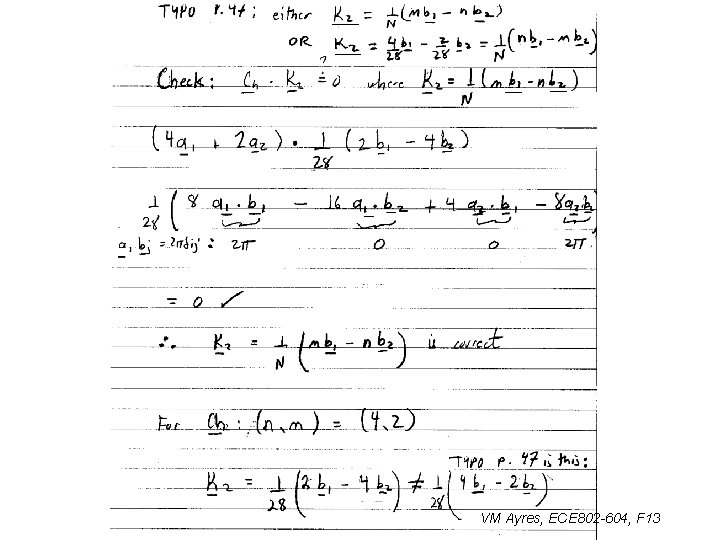 TYPO P. 47 : either K₂ = 1/N (mb₁ - nb₂)
OR K₂ = 4/28 b₁ - 2/28 b₂ = 1/N (nb₁ - mb₂)
Check: Ch · K₂ ≟ 0 where K₂ = 1/N (mb₁ - nb₂)
(4a₁ + 2a₂) · 1/28 (2b₁ - 4b₂)
1/28 (8 a₁·b₁ - 16 a₁·b₂ + 4 a₂·b₁ - 8a₂·b₂)
aᵢ bⱼ = 2πδij : 2π 0 0 2π
= 0 ✓
∴ K₂ = 1/N (mb₁ - nb₂) is correct
For Ch : (n, m) = (4, 2)
TYPO P. 47 is this:
K₂ = 1/28 (2b₁ - 4b₂) ≠ 1/28 (4b₁ - 2b₂)
VM Ayres, ECE 802-604, F13